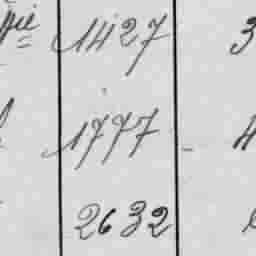 1427 3
1777 - 4
2632